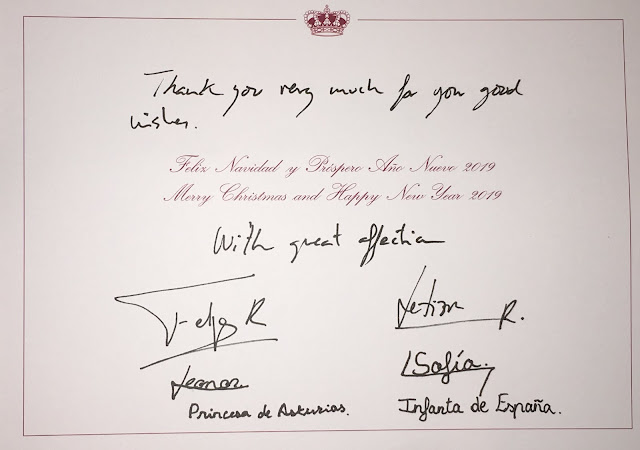 Thank you very much for you good
wishes.
Feliz Navidad y Próspero Año Nuevo 2019
Merry Christmas and Happy New Year 2019
With great affection
Felipe R
Letizia R.
Leonor
Sofía.
Princesa de Asturias.
Infanta de España.